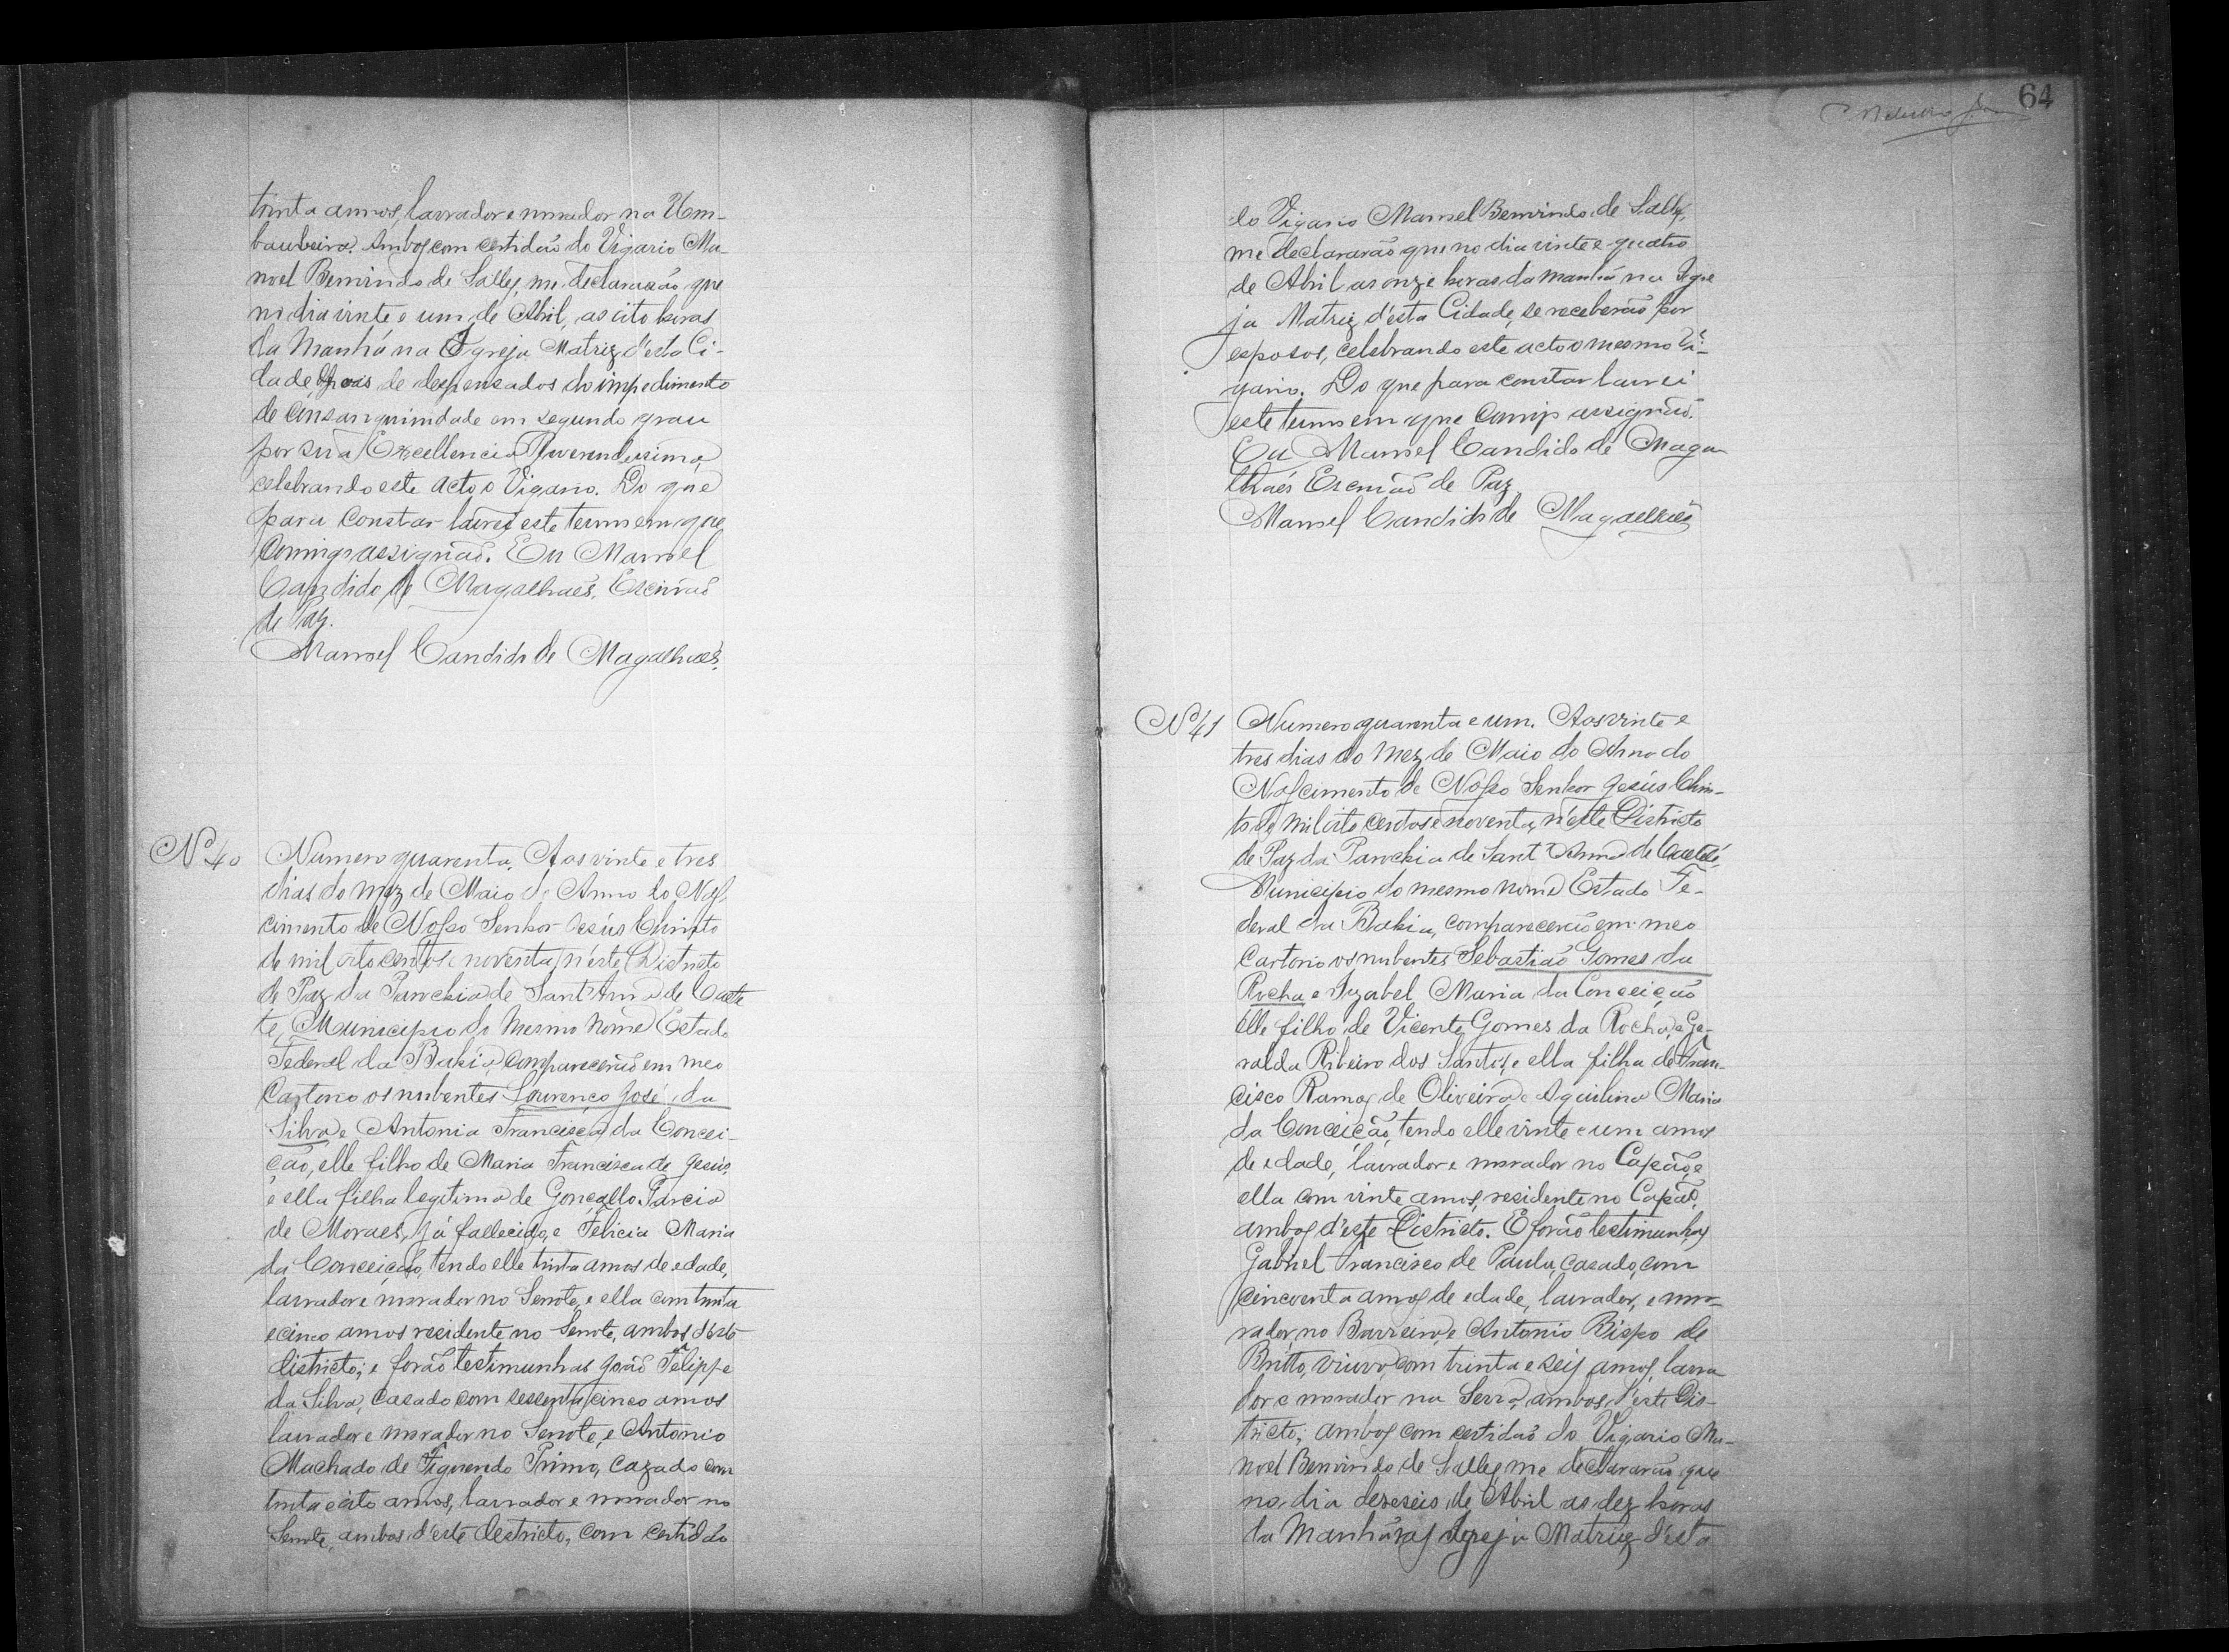 trinta annos, lavrador e morador na Um-
baubeira. Ambos com certidão do Vigario Ma-
noel Bemvindo de Salles, me declararão que
no dia vinte e um de Abril, as oito horas
da Manhã na Igreja Matriz d'esta Ci-
dade depois de despensados do impedimento
de Consanguinidade em segundo grau
por sua Excellencia Reverendissima,
celebrando este acto o Vigario. Do que
para constar lavrei este termo em que
Comigo assignão. Eu Manoel
Candido de Magalhães, Escrivão
de Paz.
Manoel Candido de Magalhães.
Nº 40 Numero quarenta. Aos vinte e tres
dias do mez de Maio do Anno do Nas-
cimento de Nosso Senhor Jesús Christo
de mil oito centos e noventa, n'este Districto
de Paz da Parochia de Sant'Anna de Caete
te, Municipio do mesmo nome Estado
Federal da Bahia, comparecerão em meo
Cartorio os nubentes Lourenço José da
Silva e Antonia Francisca da Concei-
ção, elle filho de Maria Francisca de Jesús,
e ella filha legitima de Gonçallo Parcio
de Moraes, já fallecido, e Felicia Maria
da Conceição, tendo elle trinta annos de edade,
lavrador e morador no Serrote, e ella com trinta
e cinco annos residente no Serrote, ambos d'este
districto; e forão testimunhas João Felippe
da Silva, casado com sessenta cinco annos
lavrador e morador no Serrote, e Antonio
Machado de Figueredo Primo, cazado com
trinta e oito annos, lavrador e morador no
Serrote, ambos d'este destricto, com certidão
64
do Vigario Manoel Bemvindo de Salles,
me declararão que no dia vinte e quatro
de Abril as onze horas da manhã na Igre
ja Matriz d'esta Cidade, se receberão por
esposos, celebrando este acto o mesmo Vi-
gario. Do que para constar lavrei
este termo em que Comigo assignão.
Eu Manoel Candido de Maga
lhães Escrivão de Paz
Manoel Candido de Magalhães
Nº 41 Numero quarenta e um. Aos vinte e
tres dias do Mez de Maio do Anno do
Nascimento de Nosso Senhor Jesús Chris-
to de mil oito centos e noventa, n'este Districto
de Paz da Parochia de Sant'Anna de Caeteté,
Municipio do mesmo nome Estado Fe-
deral da Bahia, comparecerão em meo
Cartorio os nubentes Sebastião Gomes da
Rocha e Izabel Maria da Conceição
elle filho de Vicente Gomes da Rocha, e Ge-
ralda Ribeiro dos Santos, e ella filha de Fran-
cisco Ramos de Oliveira e Aguilina Maria
da Conceição, tendo elle vinte e um annos
de edade, lavrador e morador no Capão, e
ella com vinte annos, residente no Capão,
ambos d'este Districto. E forão testimunhas
Gabriel Francisco de Paula, casado, com
cincoenta annos de edade, lavrador, e mo-
rador, no Barreiro, e Antonio Bispo de
Britto, viuvo, com trinta e seis annos, lavra
dor e morador na Serra, ambos d'este Dis-
tricto; ambos com certidão do Vigario Ma-
noel Bemvindo de Salles, me declararão que
no dia dezeseis de Abril as dez horas
da Manhã na Igreja Matriz d'esta